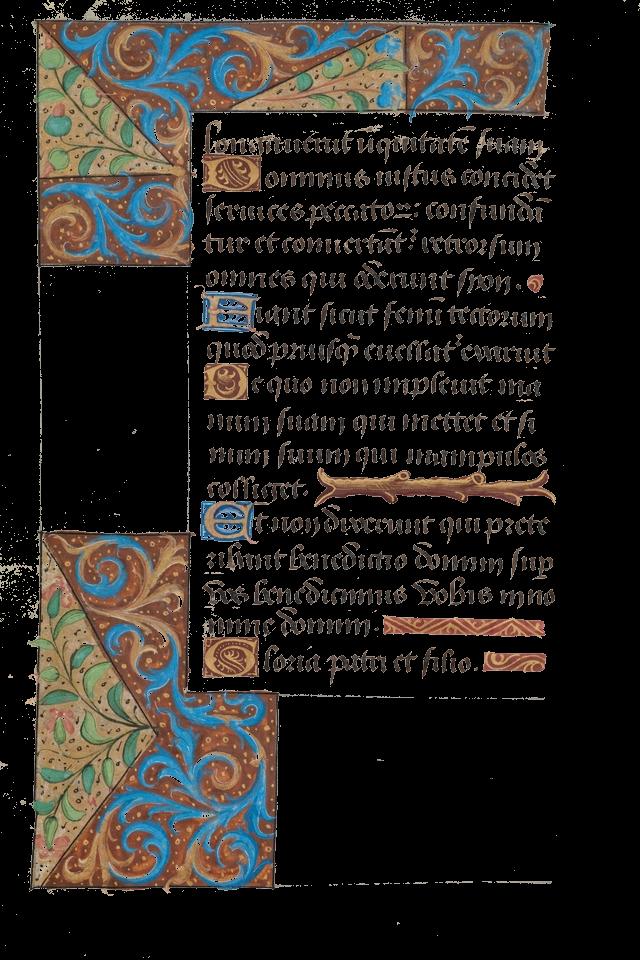 longauerut iiquitatē suam
Dominus iustus concidet
ceruices peccatoꝝ: confundā
tur et conuertāt᷑ retrorsum
omnes qui oderunt syon.
Fiant sicut fenū tectorum
quod priusq̄ euellat᷑ exaruit
De quo non impleuit ma
num suam qui mettet et si
num suum qui manipulos
colliget.
Et non dixerunt qui prete
ribant benedictio domini sup
vos benediximus vobis in no
mine domini.
Gloria patri et filio.